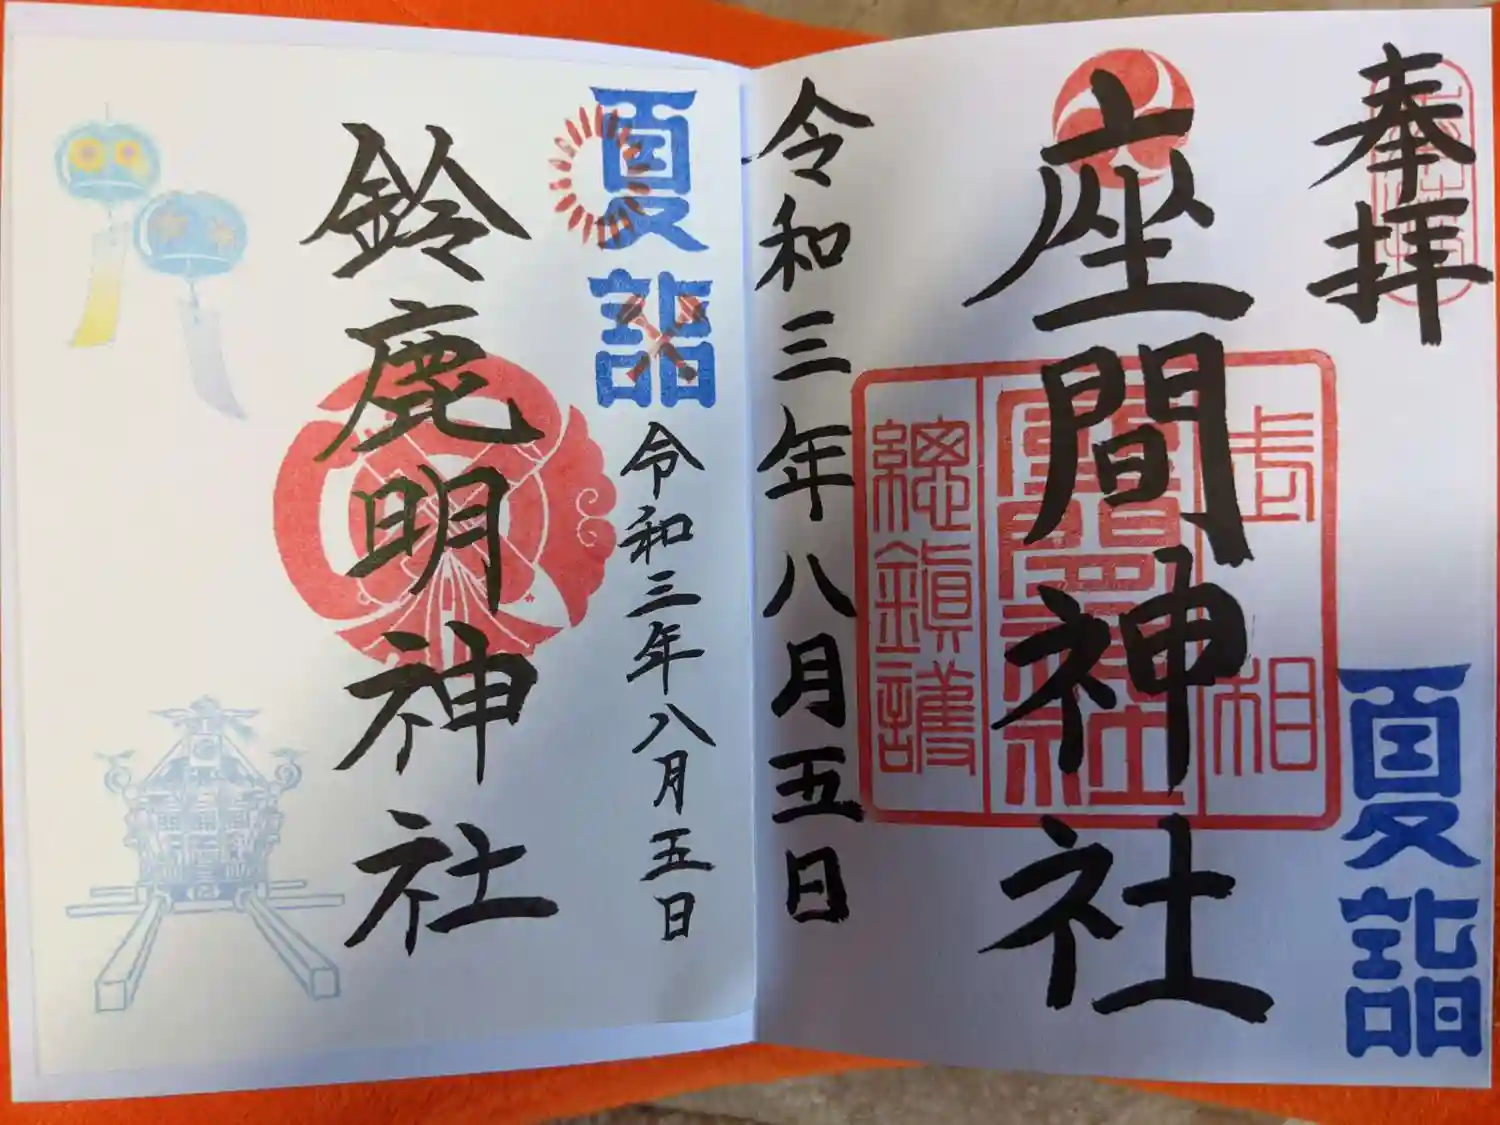 奉拝
座間神社
相武
座間神社
總鎮護
夏詣
令和三年八月五日
夏詣
令和三年八月五日
鈴鹿明神社